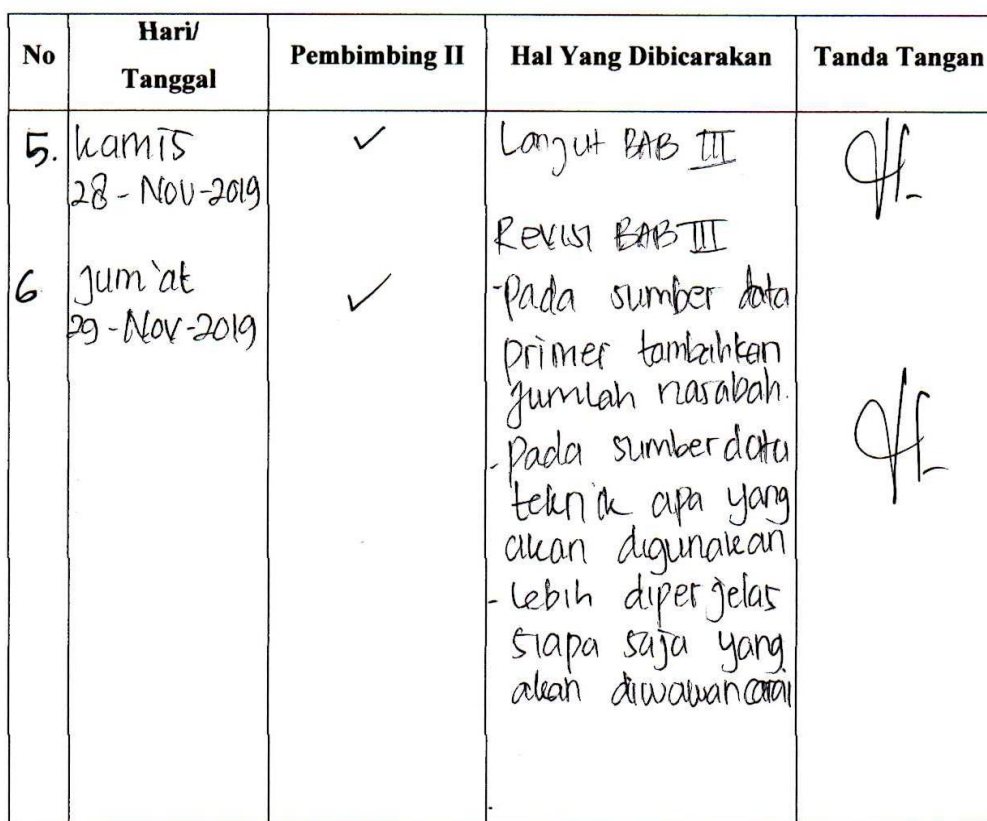 No
Hari/
Tanggal
Pembimbing II
Hal Yang Dibicarakan
Tanda Tangan
5.
Kamis
28-Nov-2019
✓
Lanjut BAB III
6
Jum'at
29-Nov-2019
✓
Revisi BAB III
-Pada sumber data
primer tambahkan
jumlah nasabah.
-Pada sumber data
teknik apa yang
akan digunakan
-Lebih diperjelas
siapa saja yang
akan diwawancarai